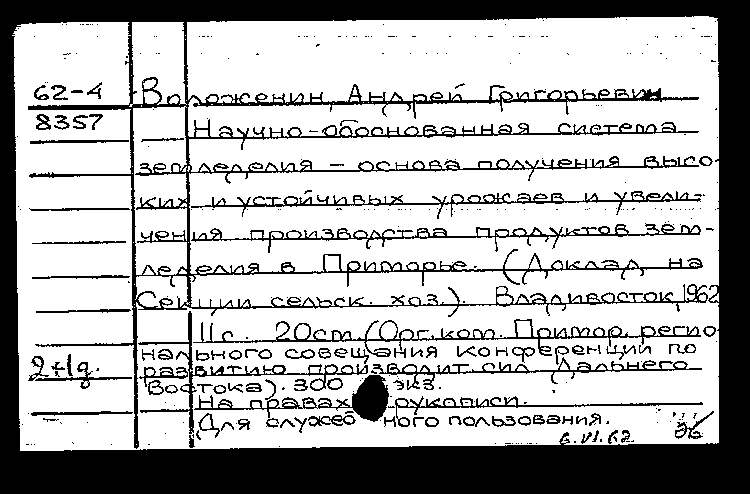 62-4 Воложенин, Андрей Григорьевич
8357 Научно-обоснованная система
земледелия – основа получения высо-
ких и устойчивых урожаев и увели-
чения производства продуктов зем-
леделия в Приморье. (Доклад на
Секции сельск. хоз.). Владивосток, 1962
11 с. 20 см. (Орг. ком. Примор. регио-
нального совещания конференции по
2+1д. развитию производит. сил Дальнего
Востока). 300 экз.
На правах рукописи.
Для служебного пользования.
6.VI.62